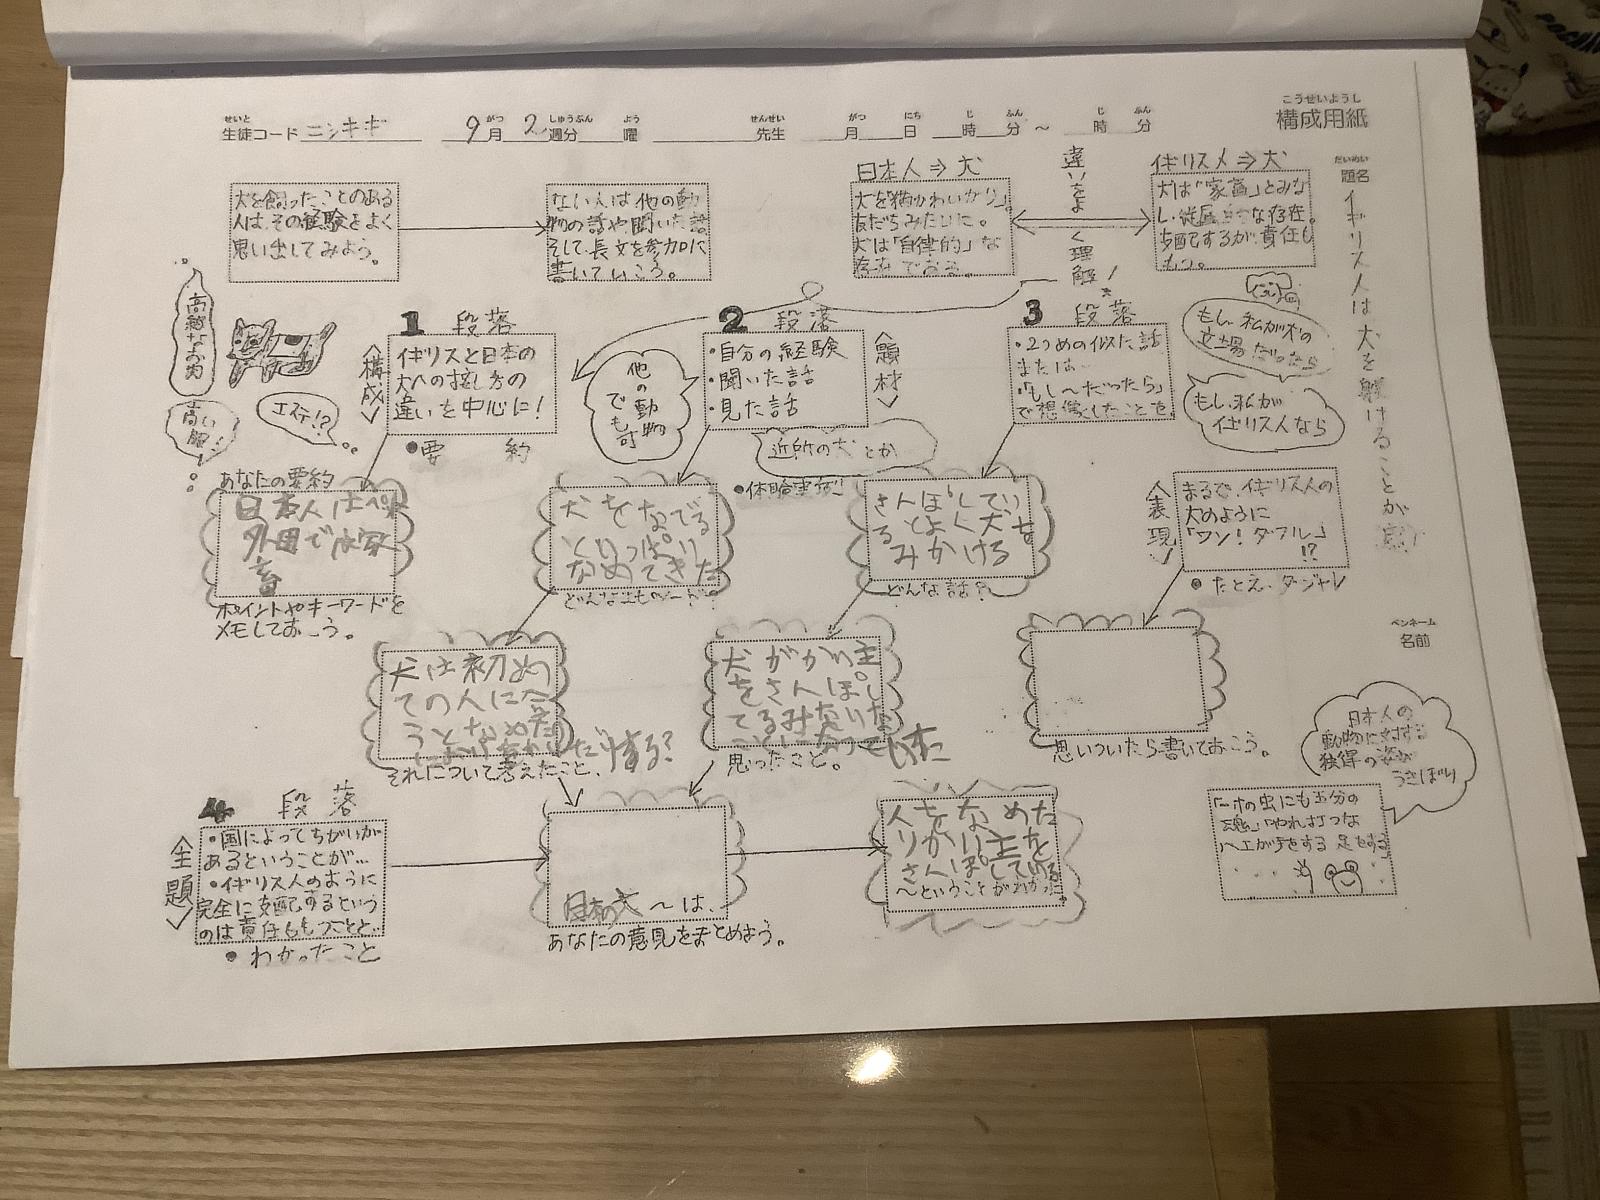 こうせいようし
構成用紙
せいと
生徒コード ニシキギ
9月 2週分 曜
がつ しゅうぶん よう
せんせい
先生
がつ にち じ ふん じ ふん
月 日 時 分 ～ 時 分
だいめい
題名
イギリス人は犬を躾けることが
ペンネーム
名前
犬を飼ったことのある
人は、その経験をよく
思い出してみよう。
ない人は他の動
物の話や聞いた話
そして、長文を参加に
書いていこう。
日本人⇒犬
犬を「猫かわいがり」。
友だちみたいに。
犬は「自律的」な
存在である。
違いをよく理解!
イギリス人⇒犬
犬は「家畜」とみな
し、従属的な存在。
支配するが、責任も
もつ。
高級なお肉
高い服!
エステ!?
1 段落
<構成>
イギリスと日本の
犬への接し方の
違いを中心に!
●要約
他の動物でも可
2 段落
<題材>
・自分の経験
・聞いた話
・見た話
近所の犬とか
●体験実例
3 段落
・2つめの似た話
または…
・「もし〜だったら」
で想像したことを。
もし、私が犬の
立場だったら
もし、私が
イギリス人なら
あなたの要約
日本人はペット
外国では家
畜
ポイントやキーワードを
メモしておこう。
犬をなでる
といっぱい
なめてきた
さんぽしてい
るとよく犬を
みかける
どんな話?
<表現>
まるで、イギリス人の
犬のように
「ワン!ダフル」
!?
●たとえ、ダジャレ
犬は初め
ての人に会
うとなめた
それについて考えたこと、
犬がかい主
をさんぽし
てるみたいな
ことになっていた
思ったこと。
思いついたら書いておこう。
日本人の
動物に対する
独得の姿が
うきぼり
4 段落
<主題>
・国によってちがいが
あるということが…
・イギリス人のように
完全に支配するという
のは責任ももつことと、
●わかったこと
日本の犬〜は、
あなたの意見をまとめよう。
人をなめた
りかい主を
さんぽしている
〜ということがわかった
「一寸の虫にも五分の
魂」「やれ打つな
ハエが手をする 足をする」